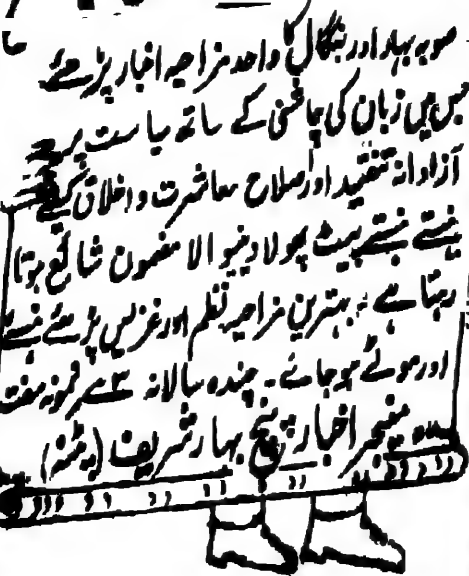 صوبہ بہار اور بنگال کا واحد مزاحیہ اخبار پڑھئے
جس میں زبان کی چاشنی کے ساتھ سیاست پر
آزادانہ تنقید اور اصلاح معاشرت و اخلاق کیلئے
ہنستے ہنستے پیٹ پھولا دینیوالا مضمون شائع ہوتا
رہتا ہے۔ بہترین مزاحیہ نظم اور غزلیں پڑھئے ہنسئے
اور موٹے ہوجائے۔ چندہ سالانہ ۳ نمونہ مفت
منیجر اخبار پنچ بہار شریف (پٹنہ)